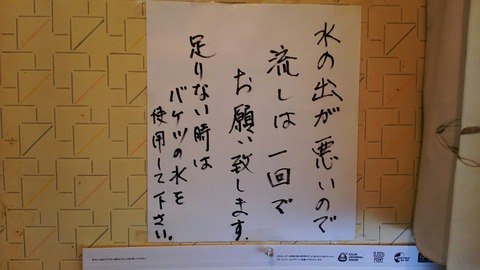 水の出が悪いので
流しは一回で
お願い致します.
足りない時は
バケツの水を
使用して下さい。